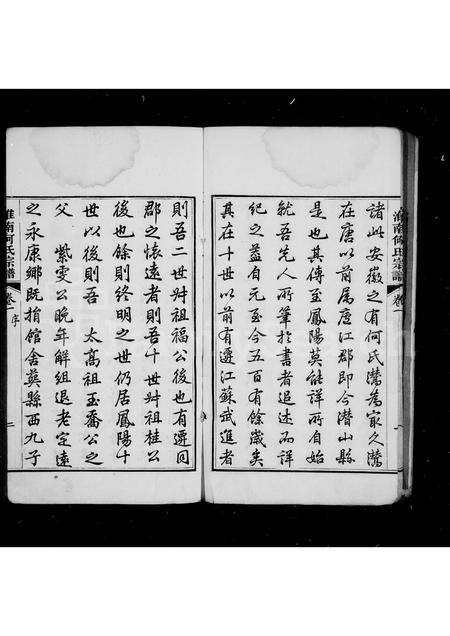 諸此安徽之有何氏灊為寂久灊
在唐以前属廬江郡即今潛山縣
是也其傳至鳳陽莫能詳所自始
就吾先人所筆於書者追述而詳
紀之葢自元至今五百有餘歲矣
其在十世以前有遷江蘇武進者
淮南何氏宗譜
卷一
序
二
則吾二世叔祖福公後也有遷同
郡之懷遠者則吾十世叔祖桂公
後也餘則終明之世仍居鳳陽十
世以後則吾 太高祖玉喬公之
父 紫雯公晚年解組退老定遠
之永康鄉既捐館舍葬縣西九子